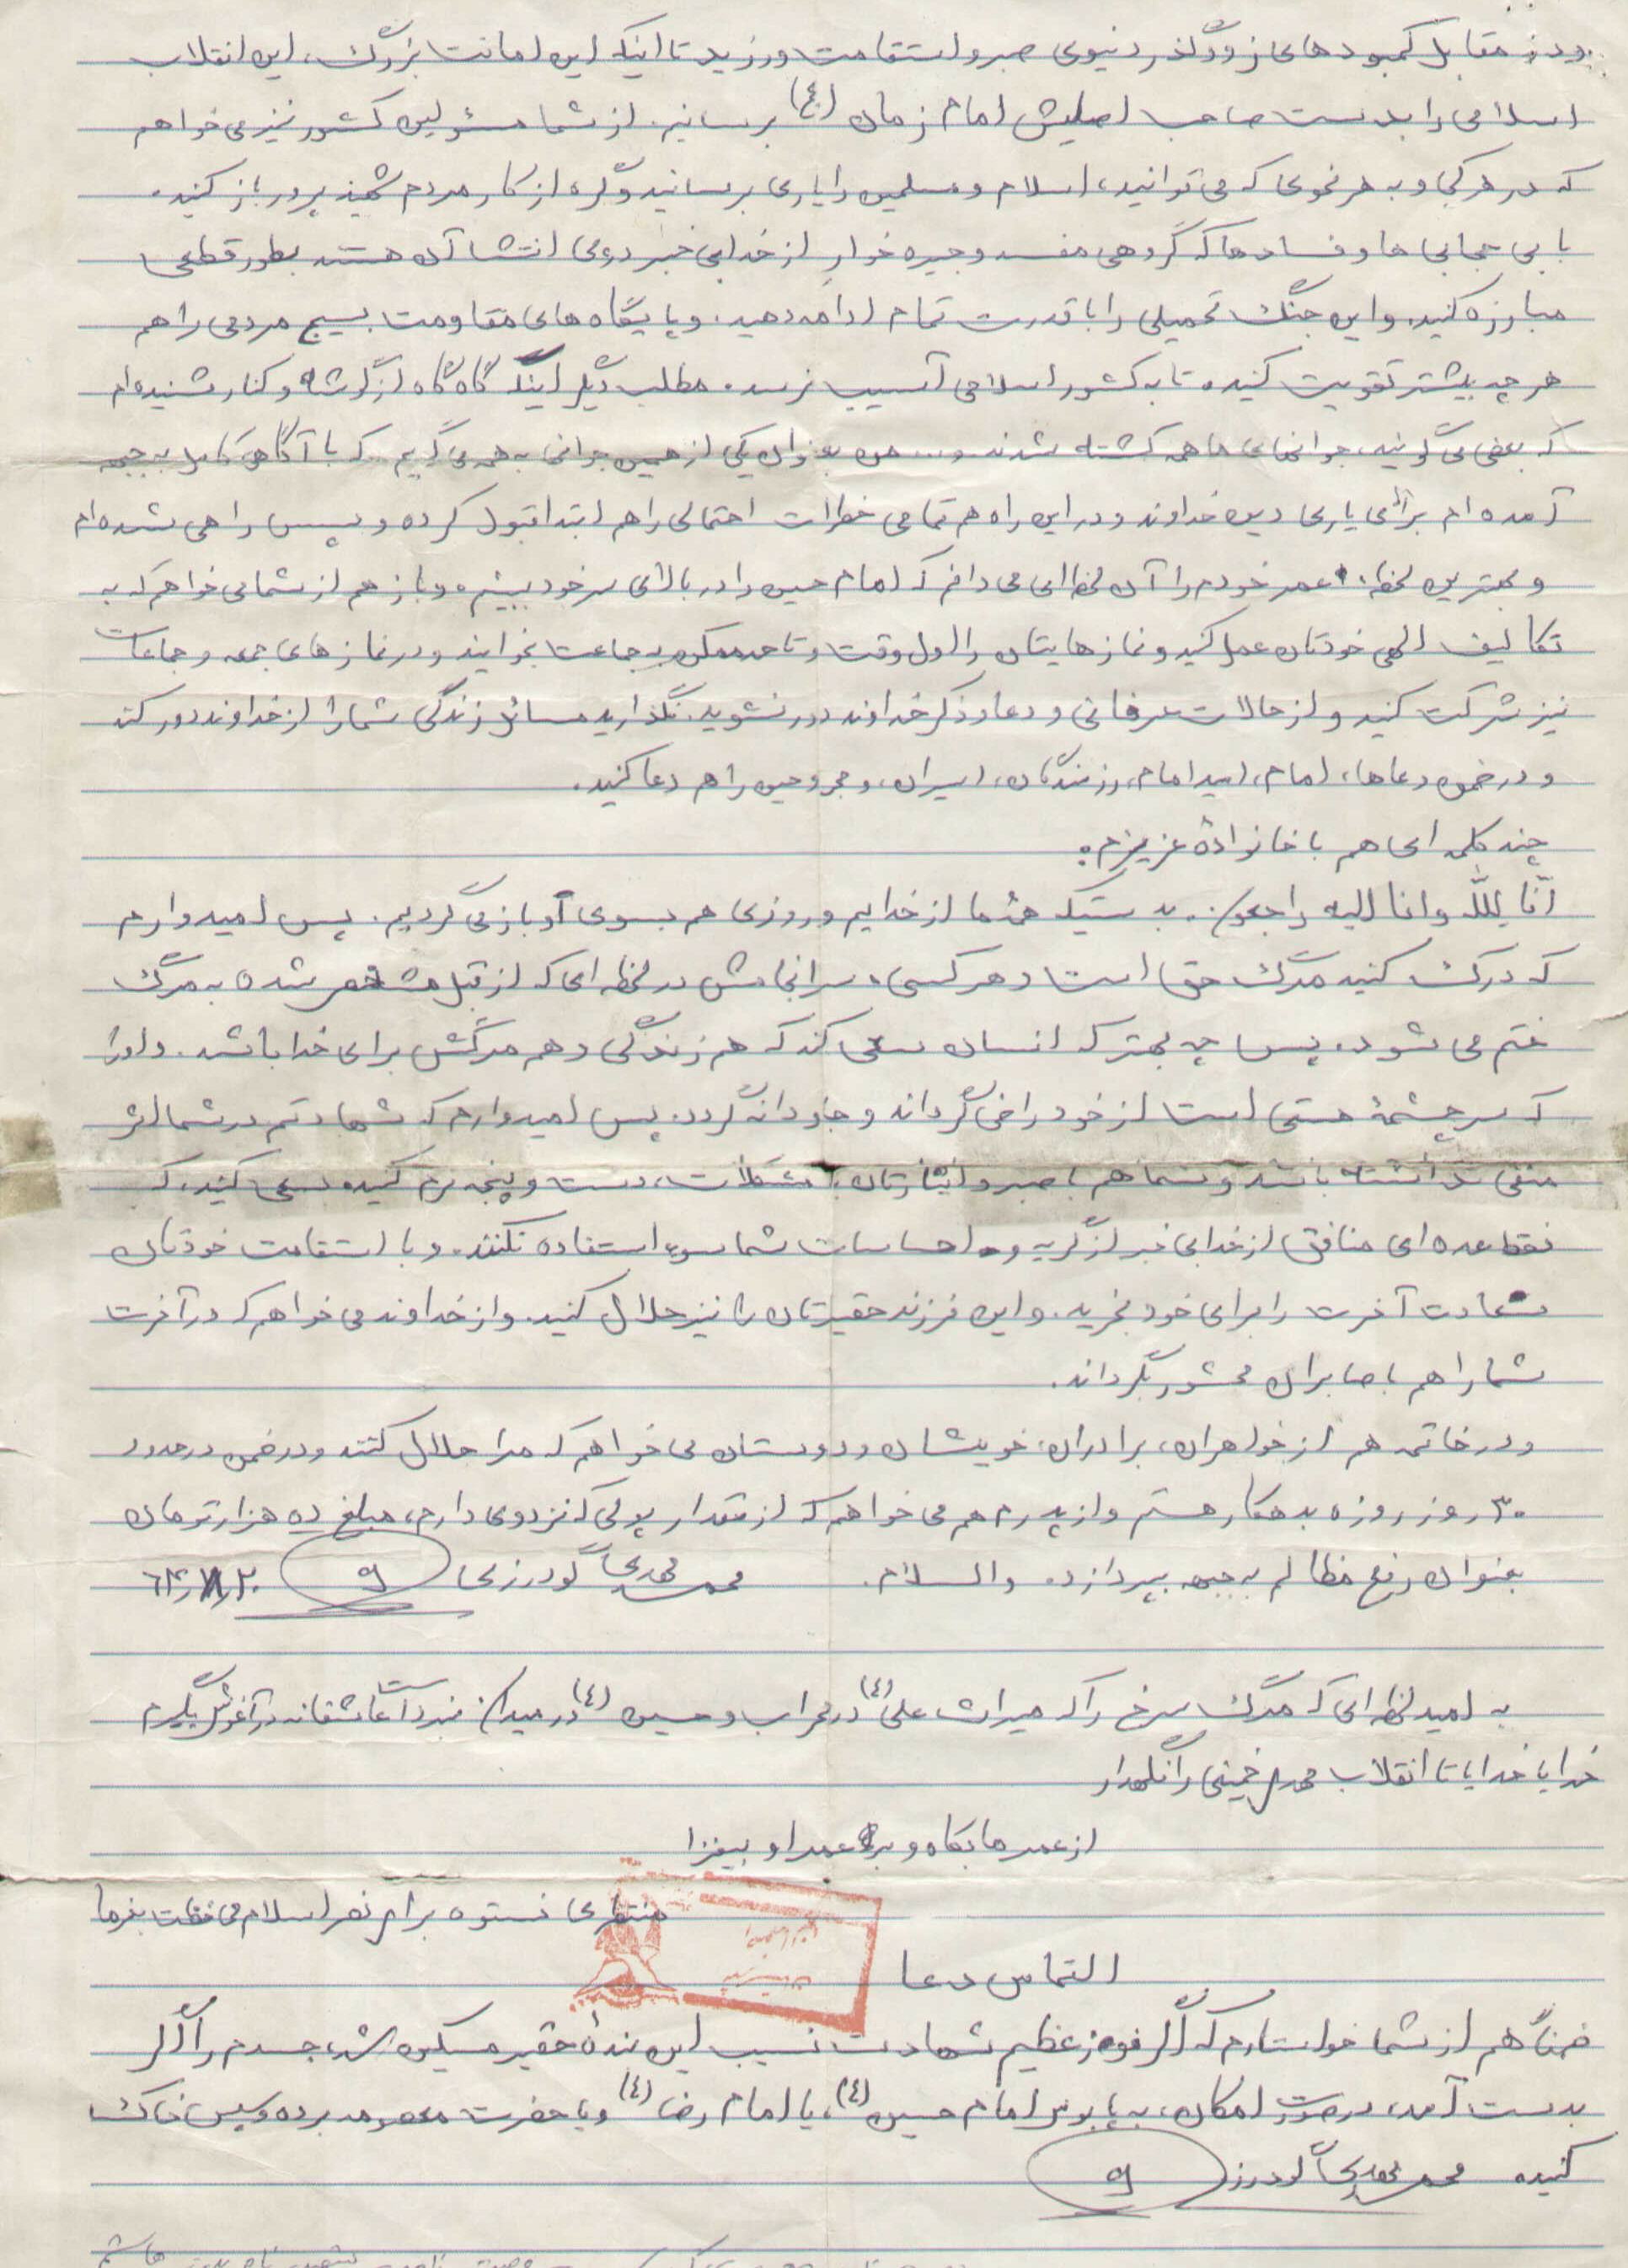 و در مقابل کمبودهای زودگذر دنیوی صبر و استقامت ورزید تا اینکه این امانت بزرگ، این انقلاب
اسلامی را بدست صاحب اصلیش امام زمان (عج) برسانیم. از شما مسئولین کشور نیز می خواهم
که در هر کجا و به هر نحوی که می توانید، اسلام و مسلمین را یاری برسانید و گره از کار مردم شهید پرور باز کنید.
با بی حجابی ها و فسادها که گروهی مفسد و جیره خوار از خدا بی خبر در پی انتشار آن هستند بطور قطعی
مبارزه کنید. و این جنگ تحمیلی را با قدرت تمام ادامه دهید. و پایگاه های مقاومت بسیج مردمی را هم
هر چه بیشتر تقویت کنید. تا به کشور اسلامی آسیب نرسد. مطلب دیگر اینکه گاه گاه از گوشه و کنار شنیده ام
که بعضی می گویند، جوانهای ما همه کشته شدند و... من بعنوان یکی از همین جوانی به همه می گویم که با آگاهی کامل به جبهه
آمده ام برای یاری دین خداوند و در این راه هم تمامی خطرات احتمالی را هم ابتدا قبول کرده و سپس راهی شده ام
و بهترین لحظه عمر خودم را آن لحظه ای می دانم که امام حسین را در بالای سر خود ببینم. و باز هم از شما می خواهم که به
تکالیف الهی خودتان عمل کنید و نمازهایتان را اول وقت و تا حد ممکن به جماعت بخوانید و در نمازهای جمعه و جماعات
نیز شرکت کنید و از حالات عرفانی و دعا و ذکر خداوند دور نشوید. نگذارید مسائل زندگی شما را از خداوند دور کند
و در ضمن دعاها، امام، امید امام، رزمندگان، اسیران، و مجروحین را هم دعا کنید.
چند کلمه ای هم با خانوادهٔ عزیزم.
انّا للّه و انا الیه راجعون. بدستیکه همهٔ ما از خدایم و روزی هم بسوی او باز می گردیم. پس امیدوارم
که درک کنید مرگ حق است و هر کسی، سرانجامش در لحظه ای که از قبل مشخص شده به مرگ
ختم می شود. پس چه بهتر که انسان سعی کند که هم زندگی و هم مرگش برای خدا باشد. و او را
که سرچشمهٔ هستی است از خود راضی گرداند و جاودانه گردد. پس امیدوارم که شهادتم در شما اثر
منفی نداشته باشد و شما هم با صبر و ایثارتان با مشکلات، دست و پنجه نرم کنید. سعی کنید، که
فقط عده ای منافق از خدا بی خبر از گریه و احساسات شما سوء استفاده نکنند. و با استقامت خودتان
سعادت آخرت را برای خود بخرید. و این فرزند حقیرتان را نیز حلال کنید. و از خداوند می خواهم که در آخرت
شما را هم با صابران محشور بگرداند.
و در خاتمه هم از خواهران، برادران، خویشان و دوستان می خواهم که مرا حلال کنند و در ضمن در حدود
۳۰ روز روزه بدهکار هستم و از پدرم هم می خواهم که از مقدار پولی که نزد وی دارم، مبلغ ده هزار تومان
بعنوان رفع مظالم به جبهه بپردازد. والسلام. محمد مهدی گودرزی
به امید لحظه ای که مرگ سرخ را که میراث علی (ع) در محراب و حسین (ع) در میدان نبرد است عاشقانه در آغوش بگیرم
خدایا خدایا تا انقلاب مهدی خمینی را نگهدار
از عمر ما بکاه و بر عمر او بیفزا
منتظری نستوه برای نصر اسلام محافظت بفرما
التماس دعا
ضمناً هم از شما خواستارم که اگر فوز عظیم شهادت نسیب این بندهٔ حقیر مسکین شد، جسدم را اگر
بدست آمد، در صورت امکان، به پابوس امام حسین (ع)، یا امام رضا (ع) و یا حضرت معصومه برده و سپس خاک
کنید. محمد مهدی گودرزی